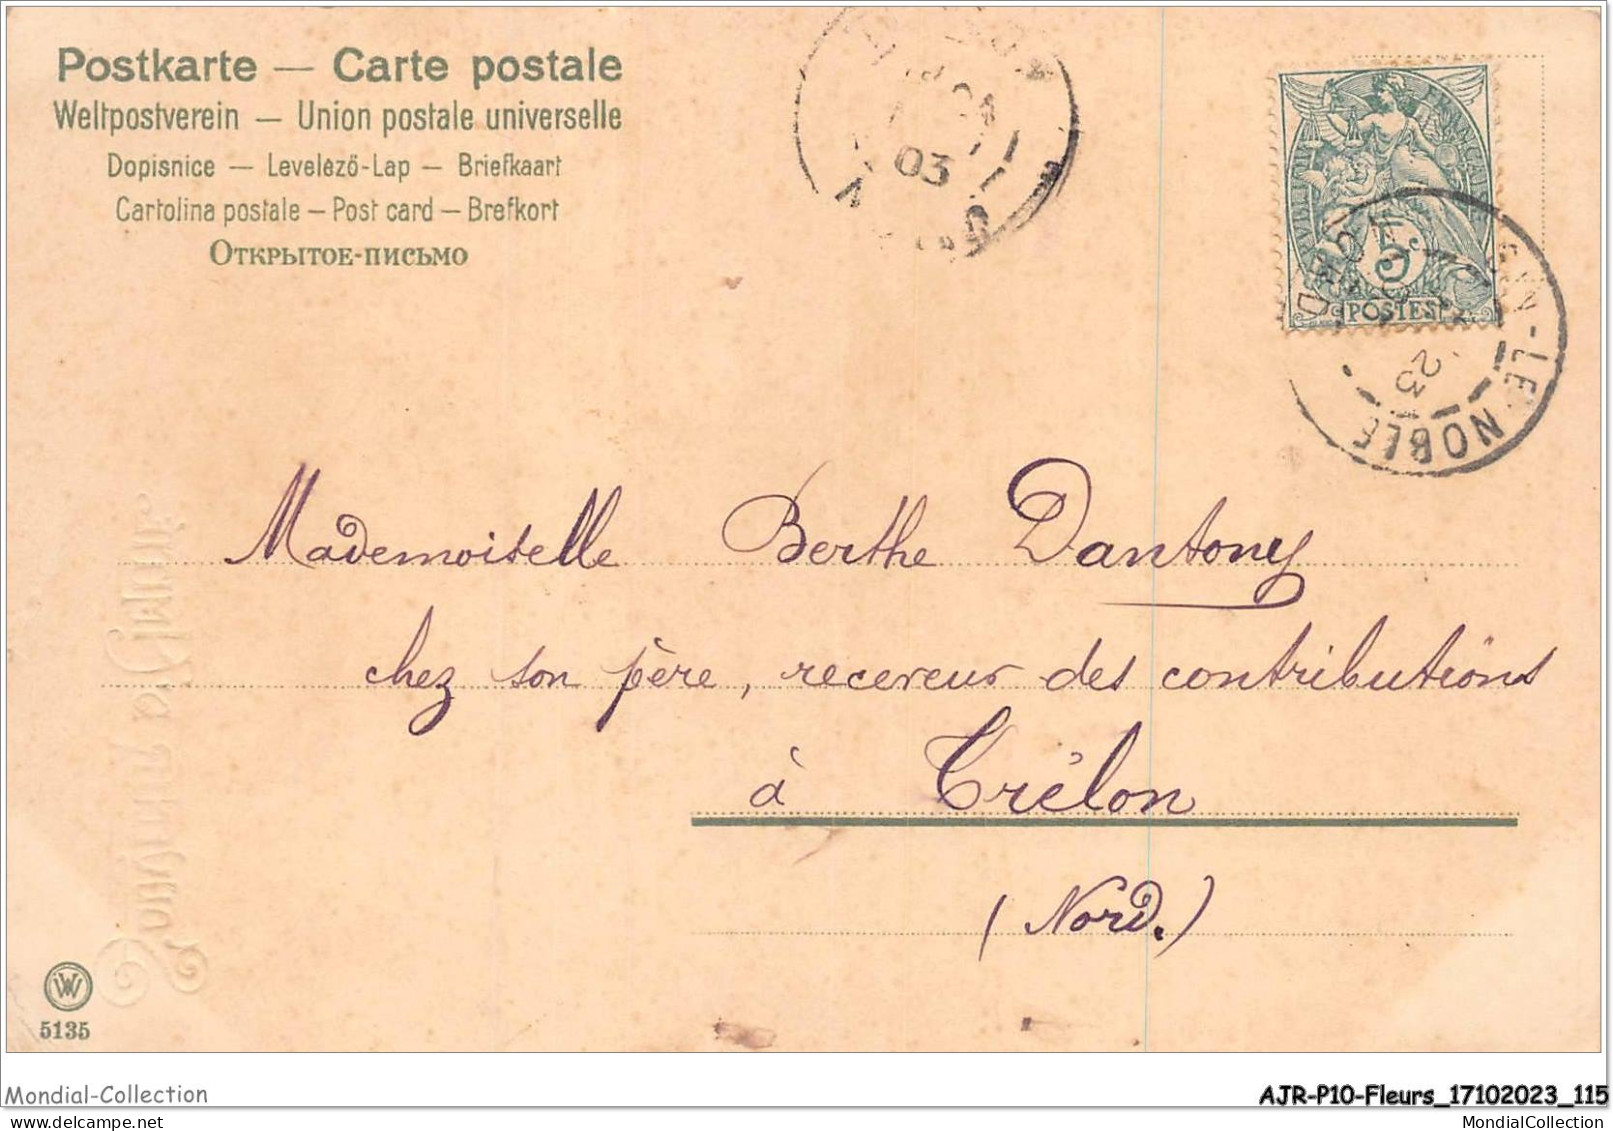 Postkarte — Carte postale
Weltpostverein — Union postale universelle
Dopisnice — Levelező-Lap — Briefkaart
Cartolina postale — Post card — Brefkort
Открытое-письмо
03
FRANÇAISE
5c
POSTES
NORD
-LE-NOBLE
23
Mademoiselle Berthe Dantony
chez son père, receveur des contributions
à Trélon
(Nord.)
WW
5135
Mondial-Collection
AJR-P10-Fleurs_17102023_115
MondialCollection